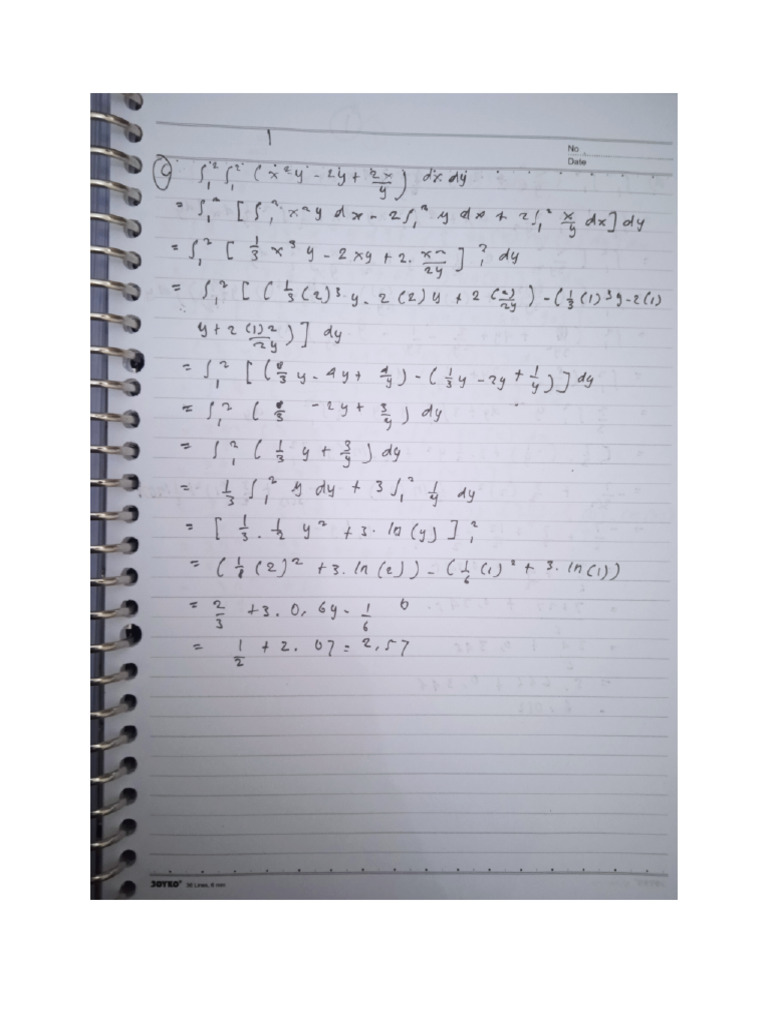 1
No
Date
9 ∫₁² ∫₁² (x²y - 2y + 2x/y) dx dy
= ∫₁² [∫₁² x²y dx - 2∫₁² y dx + 2∫₁² x/y dx] dy
= ∫₁² [1/3 x³ y - 2xy + 2. x²/2y]₁² dy
= ∫₁² [(1/3 (2)³ y - 2(2)y + 2 (2)/2y) - (1/3 (1)³y - 2(1)
y + 2 (1)2/2y)] dy
= ∫₁² [(8/3 y - 4y + 4/y) - (1/3 y - 2y + 1/y)] dy
= ∫₁² (8/3 - 2y + 3/y) dy
= ∫₁² (1/3 y + 3/y) dy
= 1/3 ∫₁² y dy + 3∫₁² 1/y dy
= [1/3 . 1/2 y² + 3. ln(y)]₁²
= (1/6 (2)² + 3. ln(2)) - (1/6 (1)² + 3. ln(1))
= 2/3 + 3. 0,69 - 1/6 0
= 1/2 + 2.07 = 2,57
JOYKO 30 Lines, 8 mm